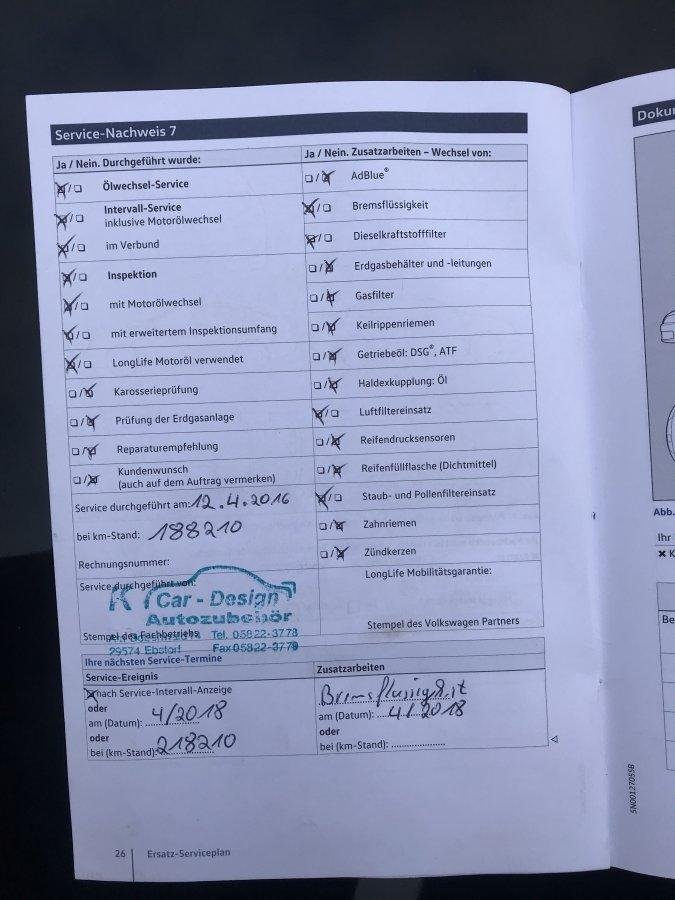 Service-Nachweis 7
Ja / Nein. Durchgeführt wurde:
Ölwechsel-Service
Intervall-Service
inklusive Motorölwechsel
im Verbund
Inspektion
mit Motorölwechsel
mit erweitertem Inspektionsumfang
LongLife Motoröl verwendet
Karosserieprüfung
Prüfung der Erdgasanlage
Reparaturempfehlung
Kundenwunsch
(auch auf dem Auftrag vermerken)
Service durchgeführt am: 12.4.2016
bei km-Stand: 188210
Rechnungsnummer:
Service durchgeführt von:
Car - Design
Autozubehör
Stempel des Fachbetriebs
Tel. 05822-3778
29574 Ebstorf Fax 05822-3779
Ja / Nein. Zusatzarbeiten – Wechsel von:
AdBlue®
Bremsflüssigkeit
Dieselkraftstofffilter
Erdgasbehälter und -leitungen
Gasfilter
Keilrippenriemen
Getriebeöl: DSG®, ATF
Haldexkupplung: Öl
Luftfiltereinsatz
Reifendrucksensoren
Reifenfüllflasche (Dichtmittel)
Staub- und Pollenfiltereinsatz
Zahnriemen
Zündkerzen
LongLife Mobilitätsgarantie:
Stempel des Volkswagen Partners
Ihre nächsten Service-Termine
Service-Ereignis
nach Service-Intervall-Anzeige
oder
am (Datum): 4/2018
oder
bei (km-Stand): 218210
Zusatzarbeiten
Bremsflüssigkeit
am (Datum): 4/2018
oder
bei (km-Stand):
26 Ersatz-Serviceplan
Doku
Abb.
Ihr
Be
5N0012705SB